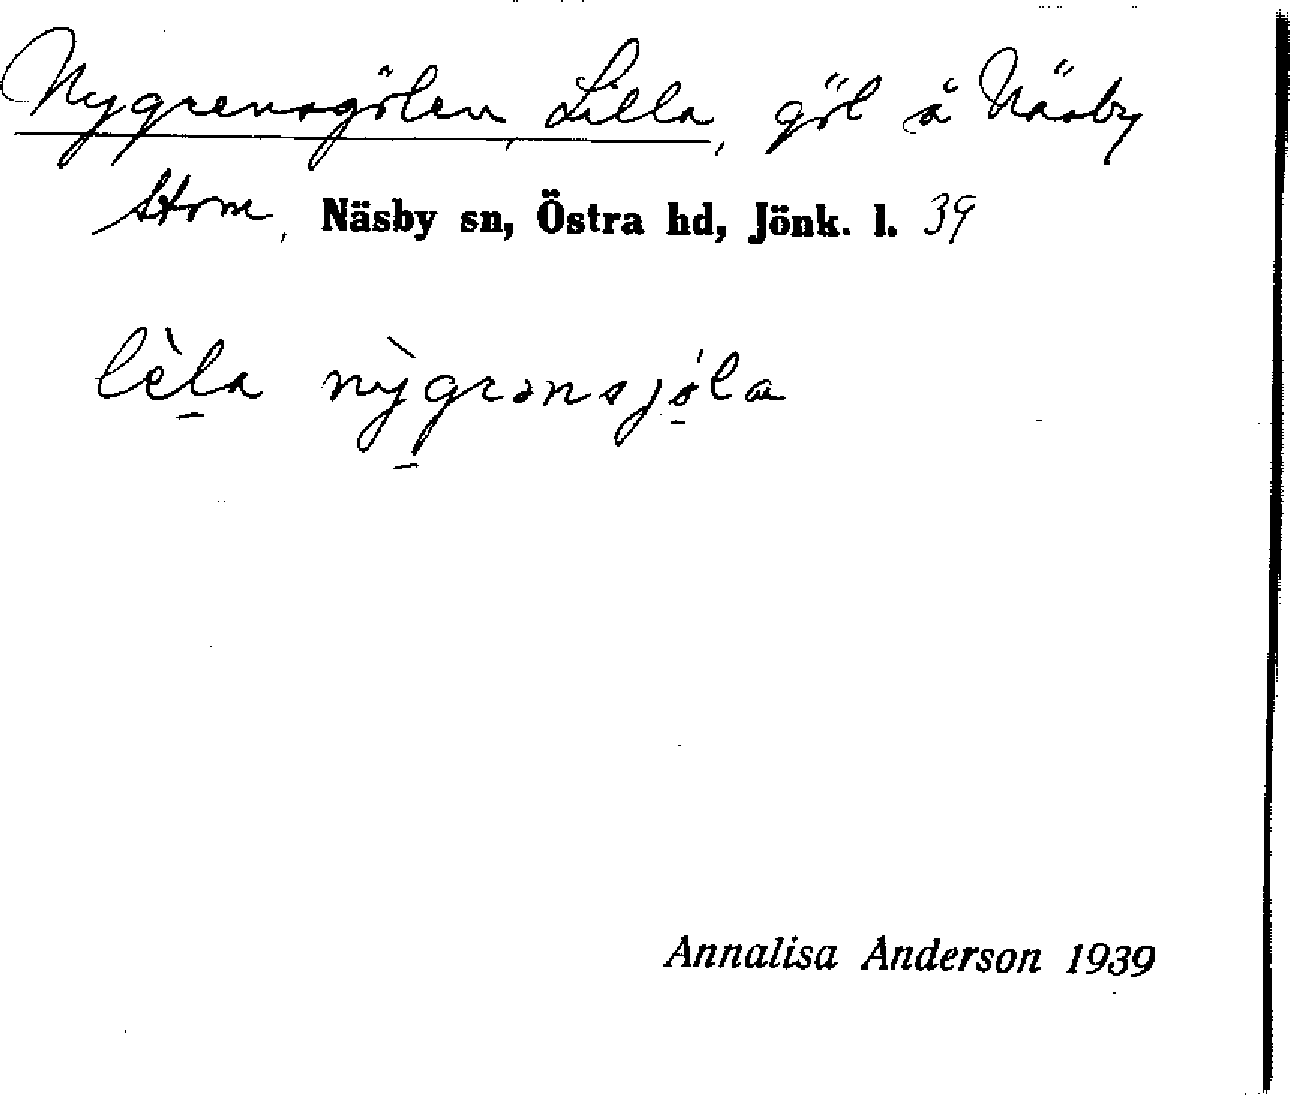 Nygrensgölen, Lilla, göl å Näsby
ktrm, Näsby sn, Östra hd, Jönk. l. 39
lèla nỳgrənsjóla
Annalisa Anderson 1939